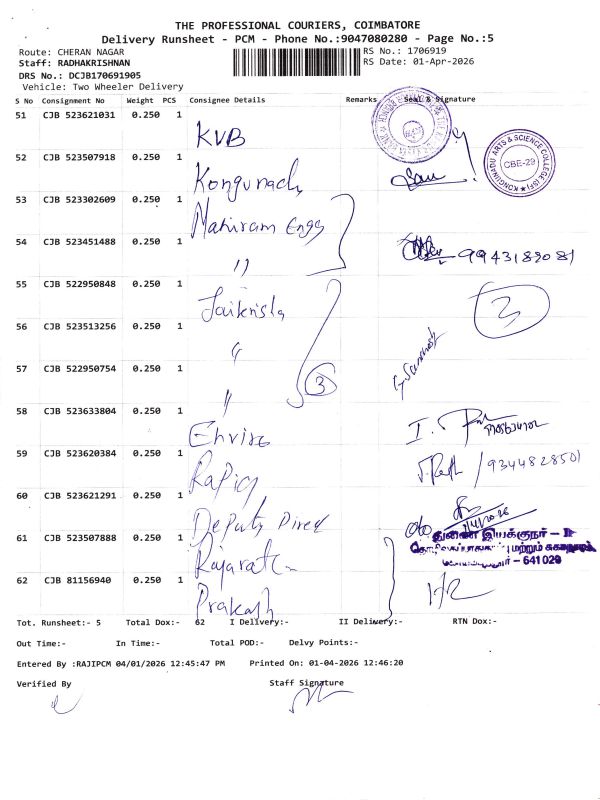 THE PROFESSIONAL COURIERS, COIMBATORE
Delivery Runsheet - PCM - Phone No.:9047080280 - Page No.:5
Route: CHERAN NAGAR
RS No.: 1706919
Staff: RADHAKRISHNAN
RS Date: 01-Apr-2026
DRS No.: DCJB170691905
Vehicle: Two Wheeler Delivery
S No Consignment No Weight PCS Consignee Details Remarks Seal & Signature
51 CJB 523621031 0.250 1 KVB
52 CJB 523507918 0.250 1
KONGUNADU ARTS & SCIENCE COLLEGE CBE-29
53 CJB 523302609 0.250 1 Maniram Engg
54 CJB 523451488 0.250 1 " 9943189081
55 CJB 522950848 0.250 1 3
56 CJB 523513256 0.250 1 "
57 CJB 522950754 0.250 1 " 3
58 CJB 523633804 0.250 1 Enviro
59 CJB 523620384 0.250 1 9344828501
60 CJB 523621291 0.250 1 Deputy
61 CJB 523507888 0.250 1
துணை இயக்குநர் – II
– 641029
62 CJB 81156940 0.250 1 Prakash
Tot. Runsheet:- 5 Total Dox:- 62 I Delivery:- II Delivery:- RTN Dox:-
Out Time:- In Time:- Total POD:- Delvy Points:-
Entered By :RAJIPCM 04/01/2026 12:45:47 PM Printed On: 01-04-2026 12:46:20
Verified By Staff Signature